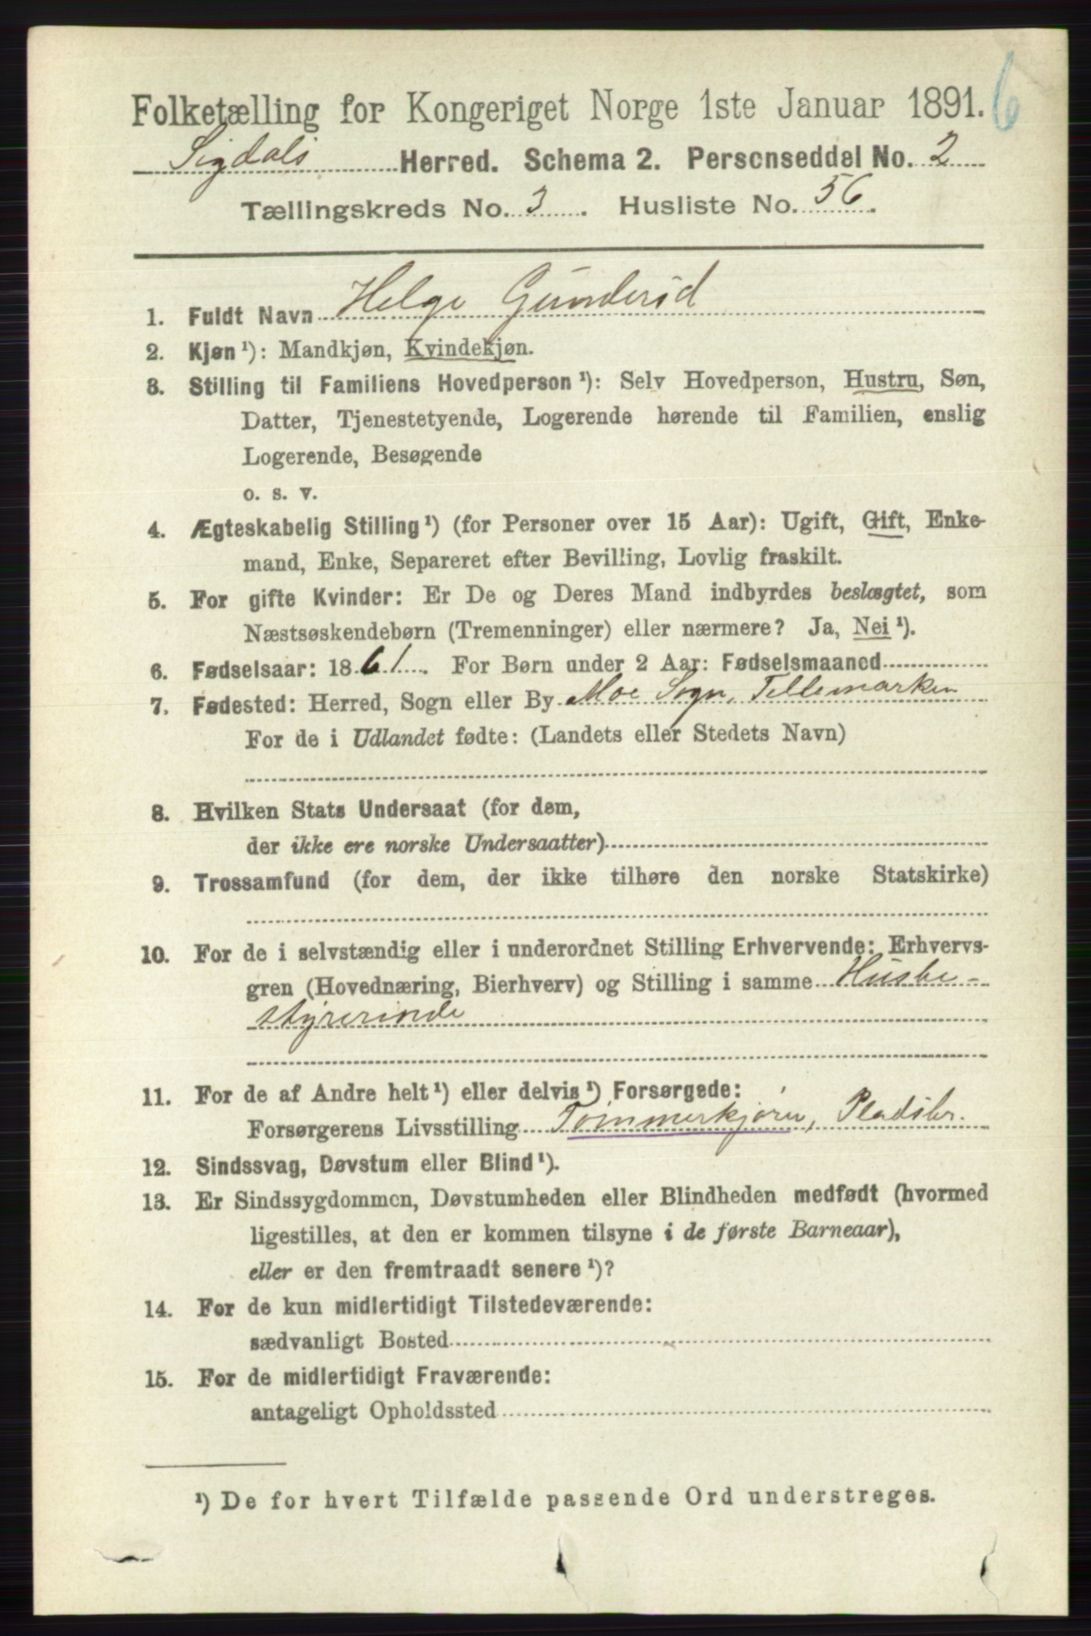 6
Folketælling for Kongeriget Norge 1ste Januar 1891.
Sigdals Herred. Schema 2. Personseddel No. 2
Tællingskreds No. 3. Husliste No. 56.
1. Fuldt Navn Helge Gunderød
2. Kjøn ¹): Mandkjøn, Kvindekjøn.
3. Stilling til Familiens Hovedperson ¹): Selv Hovedperson, Hustru, Søn,
Datter, Tjenestetyende, Logerende hørende til Familien, enslig
Logerende, Besøgende
o. s. v.
4. Ægteskabelig Stilling ¹) (for Personer over 15 Aar): Ugift, Gift, Enke-
mand, Enke, Separeret efter Bevilling, Lovlig fraskilt.
5. For gifte Kvinder: Er De og Deres Mand indbyrdes beslægtet, som
Næstsøskendebørn (Tremenninger) eller nærmere? Ja, Nei ¹).
6. Fødselsaar: 1861. For Børn under 2 Aar: Fødselsmaaned
7. Fødested: Herred, Sogn eller By Moe Sogn, Tellemarken
For de i Udlandet fødte: (Landets eller Stedets Navn)
8. Hvilken Stats Undersaat (for dem,
der ikke ere norske Undersaatter)
9. Trossamfund (for dem, der ikke tilhøre den norske Statskirke)
10. For de i selvstændig eller i underordnet Stilling Erhvervende: Erhvervs-
gren (Hovednæring, Bierhverv) og Stilling i samme Husbe-
styrerinde
11. For de af Andre helt ¹) eller delvis ¹) Forsørgede:
Forsørgerens Livsstilling Tømmerkjører, Pladsbr.
12. Sindssvag, Døvstum eller Blind ¹).
13. Er Sindssygdommen, Døvstumheden eller Blindheden medfødt (hvormed
ligestilles, at den er kommen tilsyne i de første Barneaar),
eller er den fremtraadt senere ¹)?
14. For de kun midlertidigt Tilstedeværende:
sædvanligt Bosted
15. For de midlertidigt Fraværende:
antageligt Opholdssted
¹) De for hvert Tilfælde passende Ord understreges.